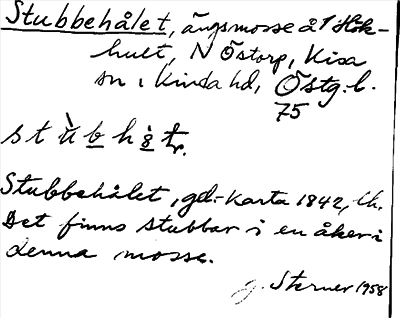 Stubbehålet, ängsmosse å 1 Hök-
hult, N Östorp, Kisa
sn i Kinda hd, Östg. l.
75
Stubbehålet, gd.-karta 1842, Ch.
Det finns stubbar i en åker i
denna mosse.
J. Sterner 1958